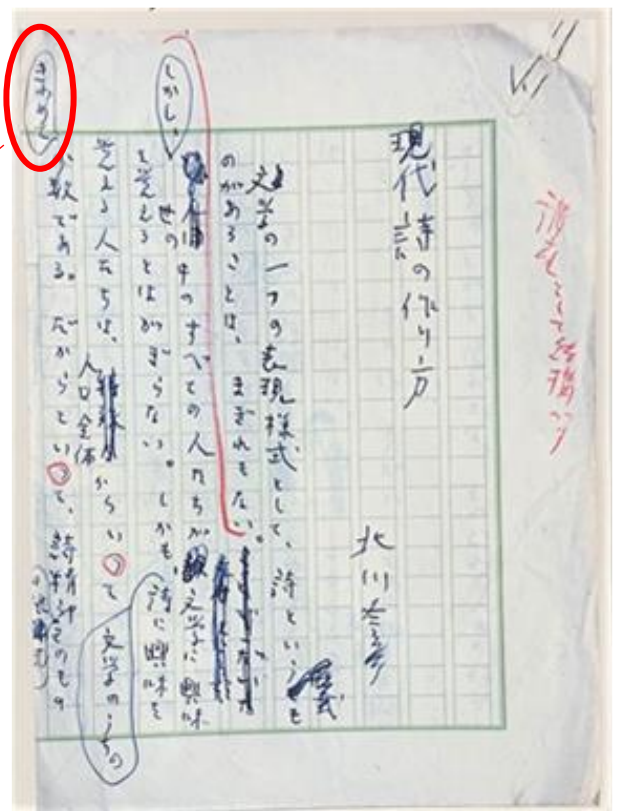 現代詩の作り方
北川冬彦
文学の一つの表現様式として、詩というも
のがあることは、まぎれもない。
しかし、世の中のすべての人たちが文学に興味
を覚えるとはかぎらない。しかも、詩に興味を
覚える人たちは、人口全体からいって文学のうちの
きわめて少数である。だからといって、詩精神そのもの